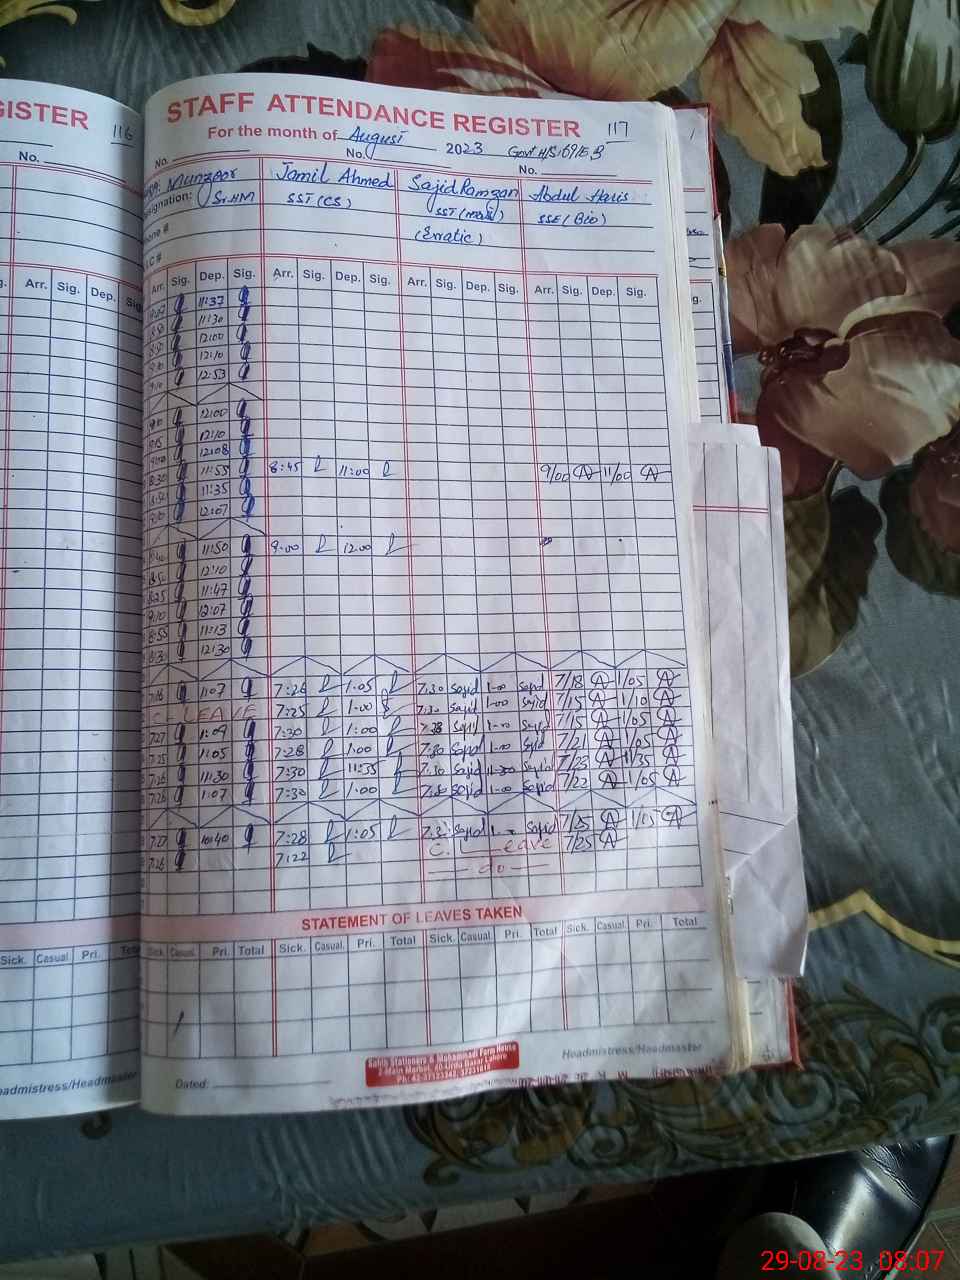 GISTER 116
STAFF ATTENDANCE REGISTER 117
For the month of August 2023 Govt H/S 169/E.B
No.
No. No. No.
Munzoor Jamil Ahmed Sajid Ramzan Abdul Haris
esignation: Sr. HM SST (CS) SST SSE (Bio)
one # (Erratic)
I.C #
Arr. Sig. Dep. Sig
Arr. Sig. Dep. Sig. Arr. Sig. Dep. Sig. Arr. Sig. Dep. Sig. Arr. Sig. Dep. Sig.
11:37
11:30
12:00
12:10
9:10 12:53
12:00
9:15 12:10
12:08
8:30 11:55 8:45 11:00 9/00 11/00
11:35
12:07
11:50 9:00 12:00
12:10
8:25 11:47
9:10 12:07
8:55 11:13
12:30
7:16 1:07 7:26 1:05 7:30 Sajid 1-00 Sajid 7/18 1/05
C. LEAVE 7:25 1:00 7:30 Sajid 1-00 Sajid 7/15 1/10
7:27 1:09 7:30 1:00 Sajid 1-00 Sajid 7/15 1/05
7:25 1:05 7:28 1:00 7:30 Sajid 1-00 Sajid 7/21 1/05
7:26 11:30 7:30 11:55 7:30 Sajid 11-30 Sajid 7/23 11/35
7:26 1:07 7:30 1:00 7:30 Sajid 1-00 Sajid 7/22 1/05
7:27 10:40 7:28 1:05 Sajid Sajid 7/25 1/05
7:26 7:22 C. Leave 7/25
— do —
STATEMENT OF LEAVES TAKEN
Sick. Casual. Pri. Total
Sick. Casual. Pri. Total Sick. Casual. Pri. Total Sick. Casual. Pri. Total Sick. Casual. Pri. Total
eadmistress/Headmaster
Dated:
Sahib Stationers & Muhammadi Form House
2-Main Market, 40-Urdu Bazar Lahore
Headmistress/Headmaster
29-08-23 08:07